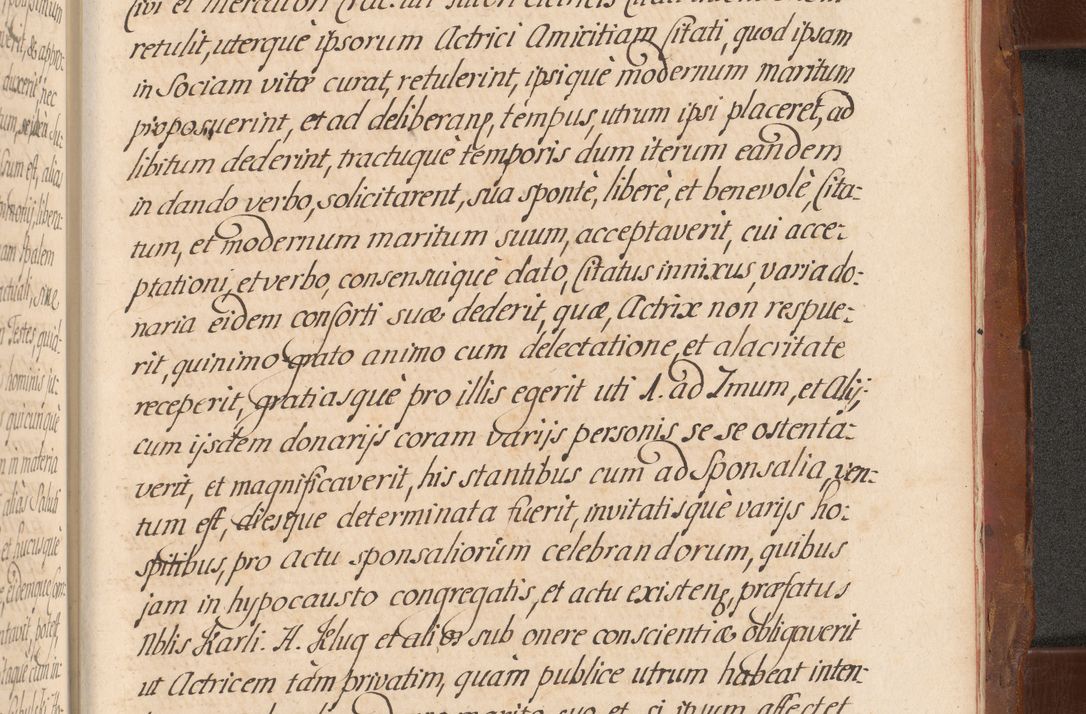 retulit, uterquè ipsorum Actrici Amicitiam Citati, quod ipsam
in Sociam vitæ curat, retulerint, ipsiquè modernum maritum
proposuerint, et ad deliberanᶎ, tempus, utrum ipsi placeret, ad
libitum dederint, tractuquè temporis dum iterum eandem
in dando verbo, solicitarent, sua spontè, liberè, et benevolè, Cita-
tum, et modernum maritum suum, acceptaverit, cui acce-
ptationi, et verbo, consensuiquè dato, Citatus innixus, varia do-
naria eidem consorti suæ dederit, quæ, Actrix non respue-
rit, quinimo grato animo cum delectatione, et alacritate
receperit, gratiasquè pro illis egerit uti 1. ad Imum, et Alij,
cum ijsdem donarijs coram varijs personis se se ostenta-
verit, et magnificaverit, his stantibus cum ad Sponsalia, ven-
tum est, diesque determinata fuerit, invitatisquè varijs ho-
spitibus, pro actu sponsaliorum celebrandorum, quibus
jam in hypocausto congregatis, et actu existenᶎ, præfatus
Nblis Karli. A. Jeluq et alios sub onere conscientiæ obligaverit
ut Actricem tàm privatim, quàm publice utrum habeat inten-